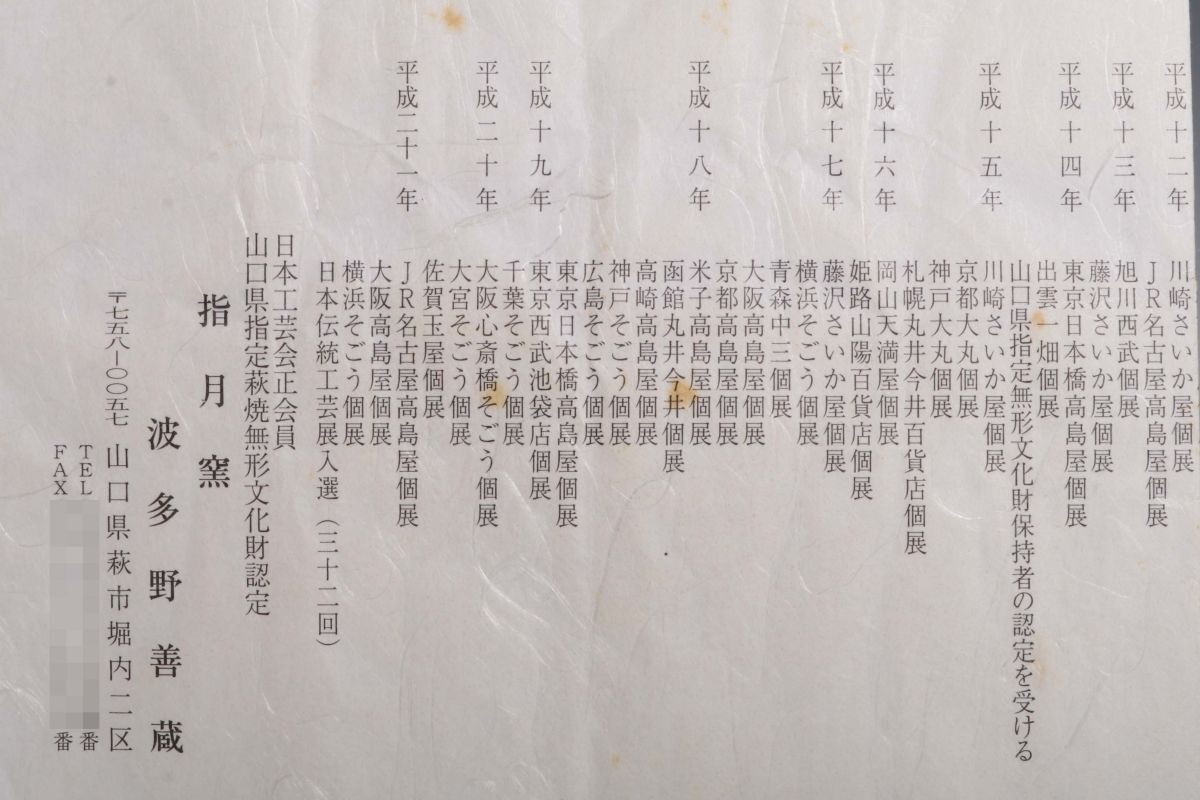 平成十二年 川崎さいか屋個展
ＪＲ名古屋高島屋個展
平成十三年 旭川西武個展
藤沢さいか屋個展
平成十四年 東京日本橋高島屋個展
出雲一畑個展
山口県指定無形文化財保持者の認定を受ける
平成十五年 川崎さいか屋個展
京都大丸個展
神戸大丸個展
札幌丸井今井百貨店個展
平成十六年 岡山天満屋個展
姫路山陽百貨店個展
平成十七年 藤沢さいか屋個展
横浜そごう個展
青森中三個展
大阪高島屋個展
京都高島屋個展
平成十八年 米子高島屋個展
函館丸井今井個展
高崎高島屋個展
神戸そごう個展
広島そごう個展
東京日本橋高島屋個展
平成十九年 東京西武池袋店個展
千葉そごう個展
平成二十年 大阪心斎橋そごう個展
大宮そごう個展
佐賀玉屋個展
平成二十一年 ＪＲ名古屋高島屋個展
大阪高島屋個展
横浜そごう個展
日本伝統工芸展入選（三十二回）
日本工芸会正会員
山口県指定萩焼無形文化財認定
指月窯
波多野善蔵
〒七五八－〇〇五七 山口県萩市堀内二区
ＴＥＬ 番
ＦＡＸ 番